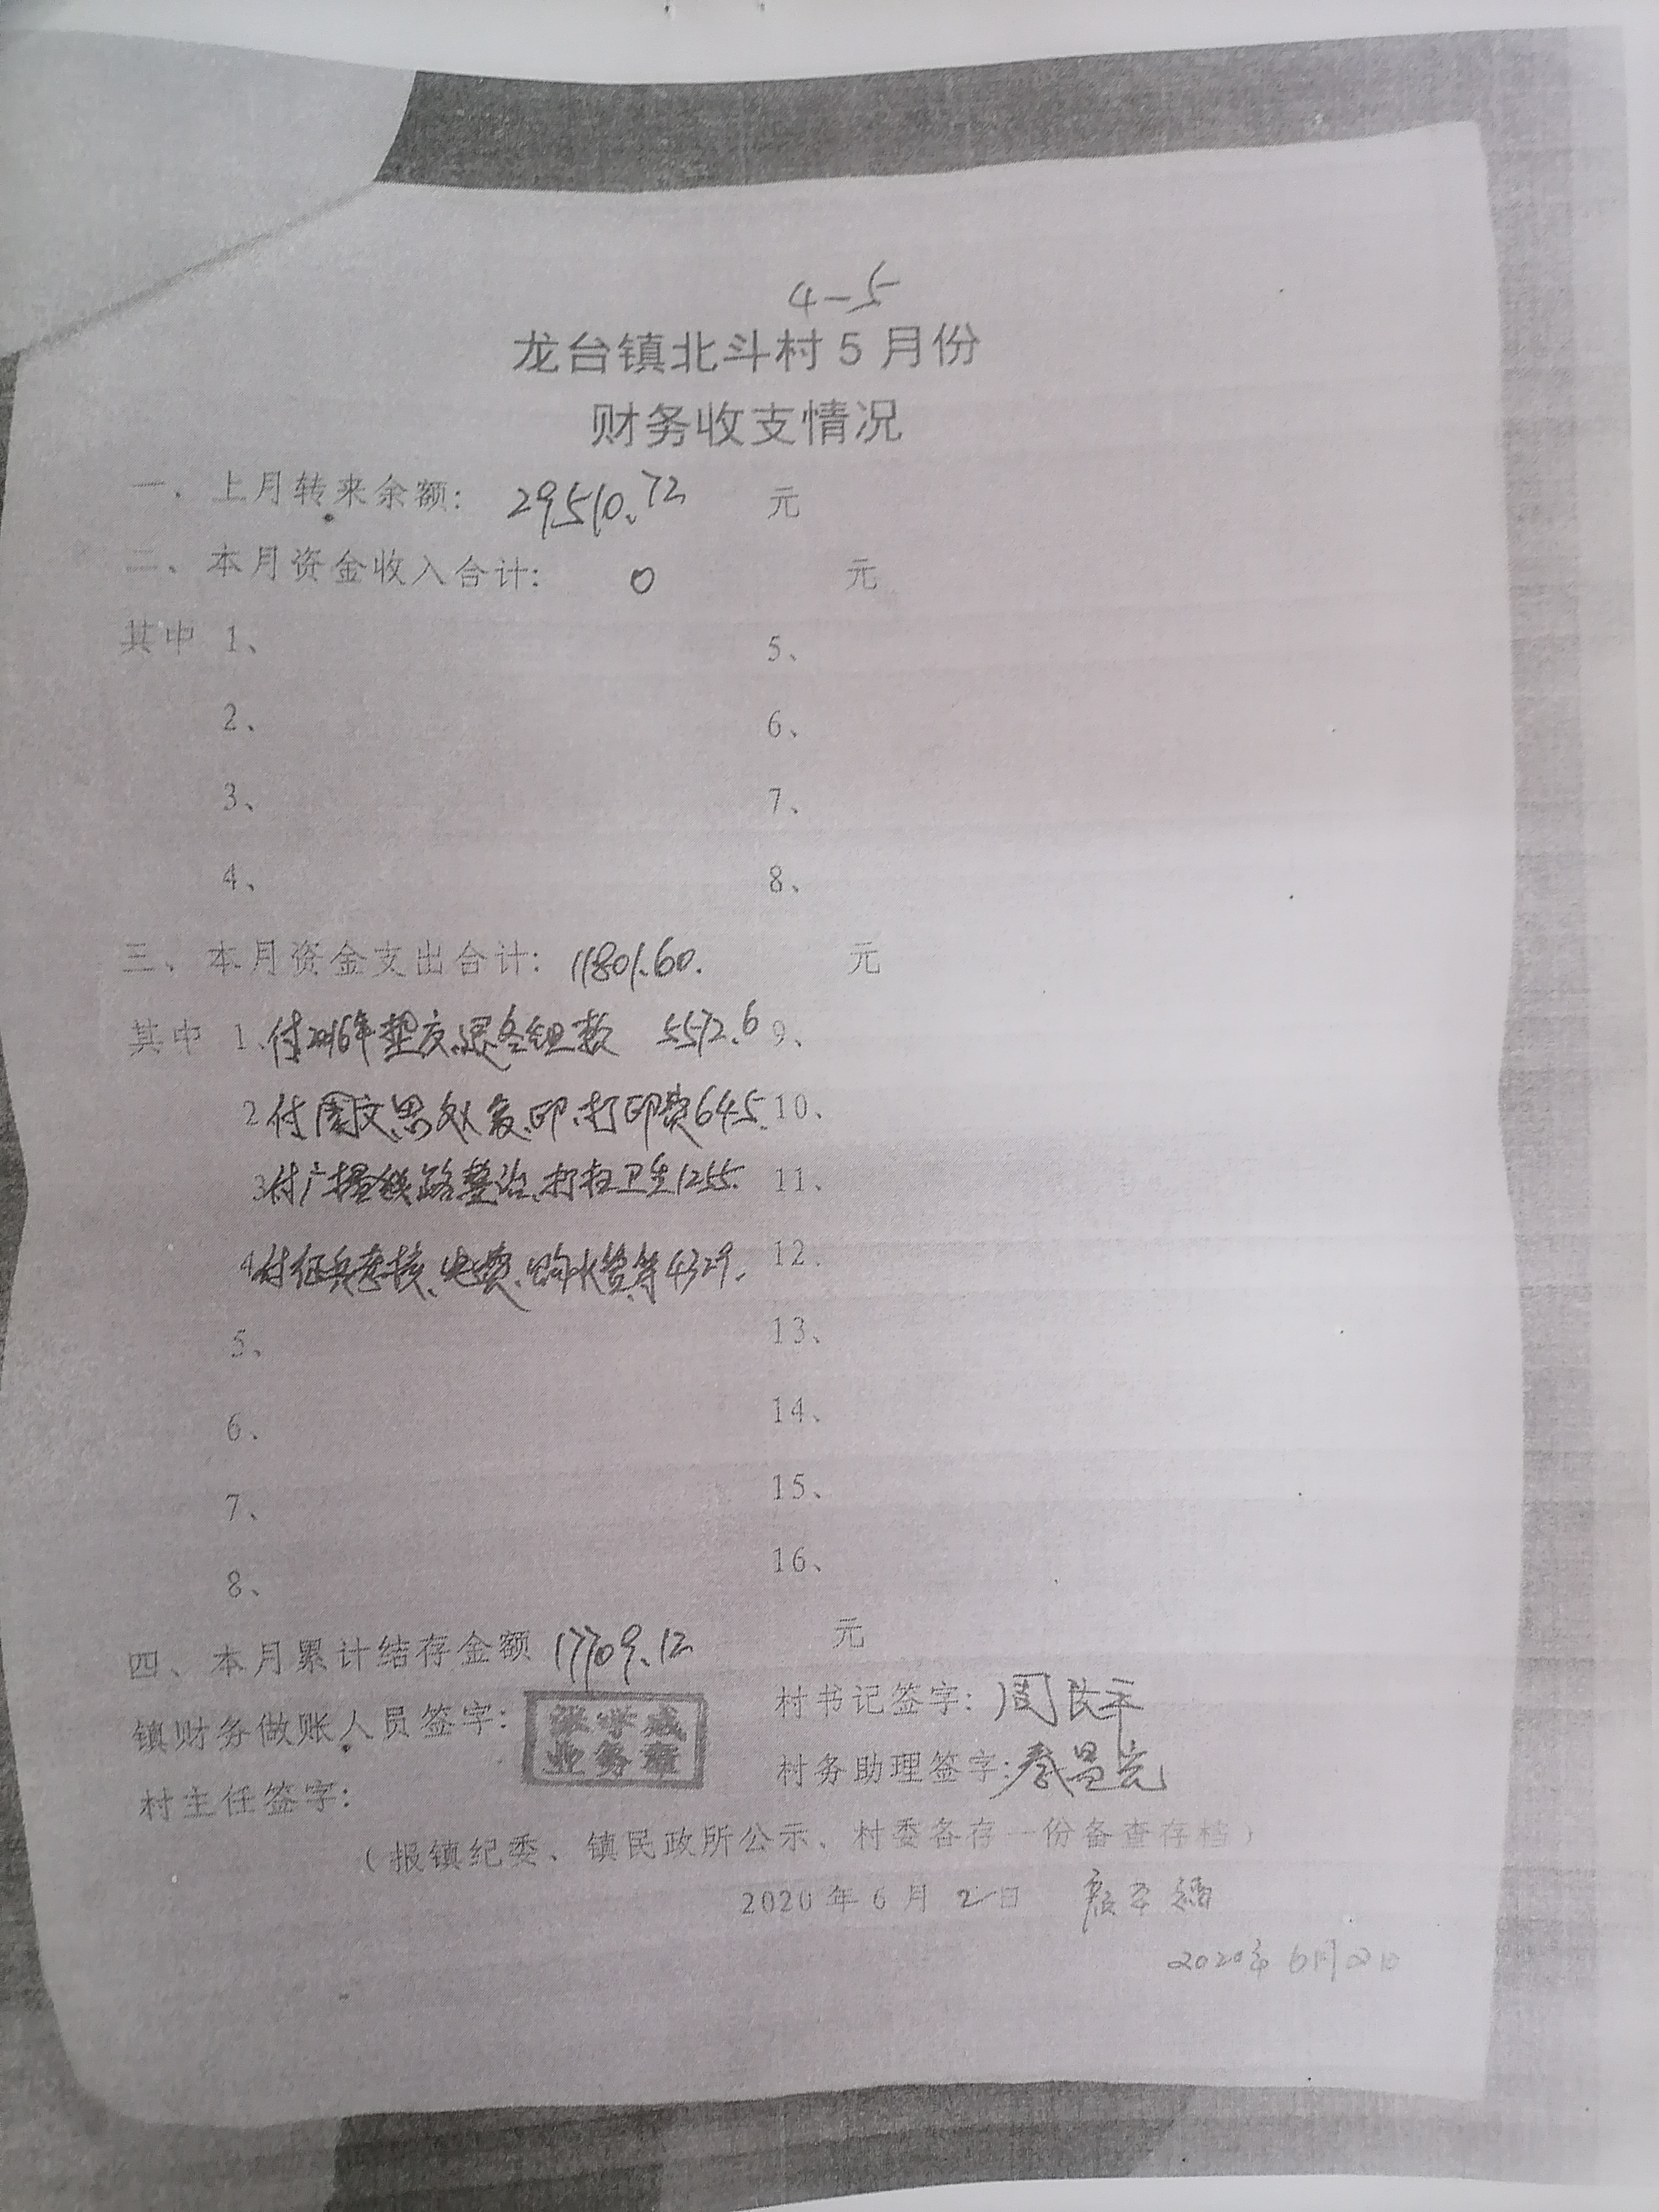 4-5
龙台镇北斗村5月份
财务收支情况
一、上月转来余额: 29510.72 元
二、本月资金收入合计: 0 元
其中 1、 5、
2、 6、
3、 7、
4、 8、
三、本月资金支出合计: 11801.60. 元
其中 1、付2016年 各组款 5572.6 9、
2付图文 复印、打印费645. 10、
3付广播线路整治、打扫卫生1255. 11、
4付征兵考核、电费、购水管等4329. 12、
5、 13、
6、 14、
7、 15、
8、 16、
四、本月累计结存金额 17709.12 元
镇财务做账人员签字: 村书记签字: 周
业务章
村主任签字: 村务助理签字: 昌
(报镇纪委、镇民政所公示、村委各存一份备查存档)
2020年6月2日
2020年6月2日